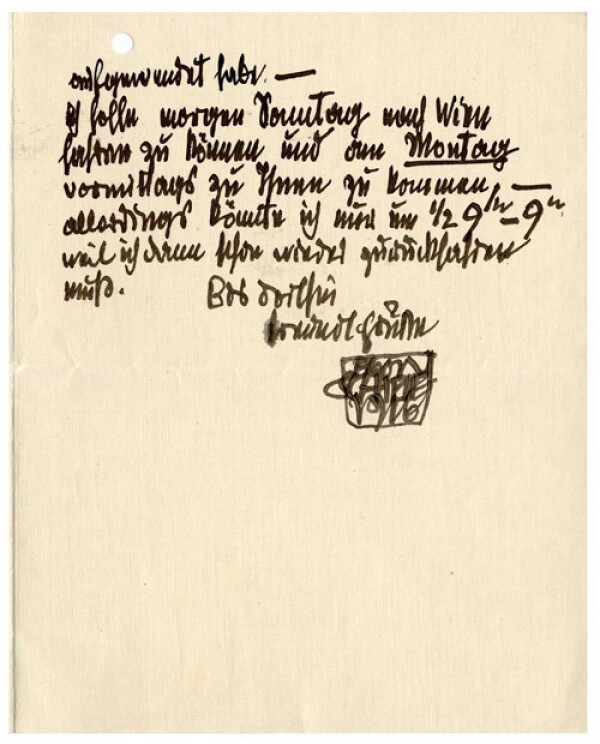 aufgewendet habe. —
ich hoffe morgen Sonntag nach Wien
fahren zu können und am Montag
vormittags zu Ihnen zu kommen, —
allerdings könnte ich nur um 1/2 9 h – 9 h
weil ich dann schon wieder zurückfahren
muß. Bis dorthin
freundl Grüße
EGON
SCHIELE
1916